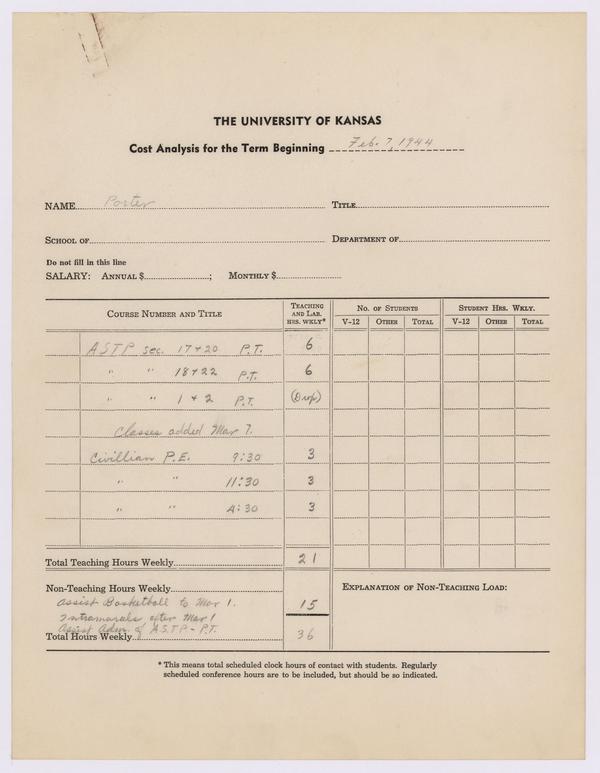 THE UNIVERSITY OF KANSAS
Cost Analysis for the Term Beginning Feb. 7, 1944
NAME Porter TITLE
SCHOOL OF DEPARTMENT OF
Do not fill in this line
SALARY: ANNUAL $ ; MONTHLY $
COURSE NUMBER AND TITLE TEACHING AND LAB. HRS. WKLY* NO. OF STUDENTS STUDENT HRS. WKLY.
V-12 OTHER TOTAL V-12 OTHER TOTAL
ASTP sec. 17 + 20 P.T. 6
" " 18 + 22 P.T. 6
" " 1 + 2 P.T. (Drop)
Classes added Mar 7.
Civillian P.E. 9:30 3
" " 11:30 3
" " 4:30 3
Total Teaching Hours Weekly 21
Non-Teaching Hours Weekly EXPLANATION OF NON-TEACHING LOAD:
Assist Basketball to Mar 1. 15
Intramurals after Mar 1
Assist Adm. of A.S.T.P - P.T.
Total Hours Weekly 36
* This means total scheduled clock hours of contact with students. Regularly
scheduled conference hours are to be included, but should be so indicated.